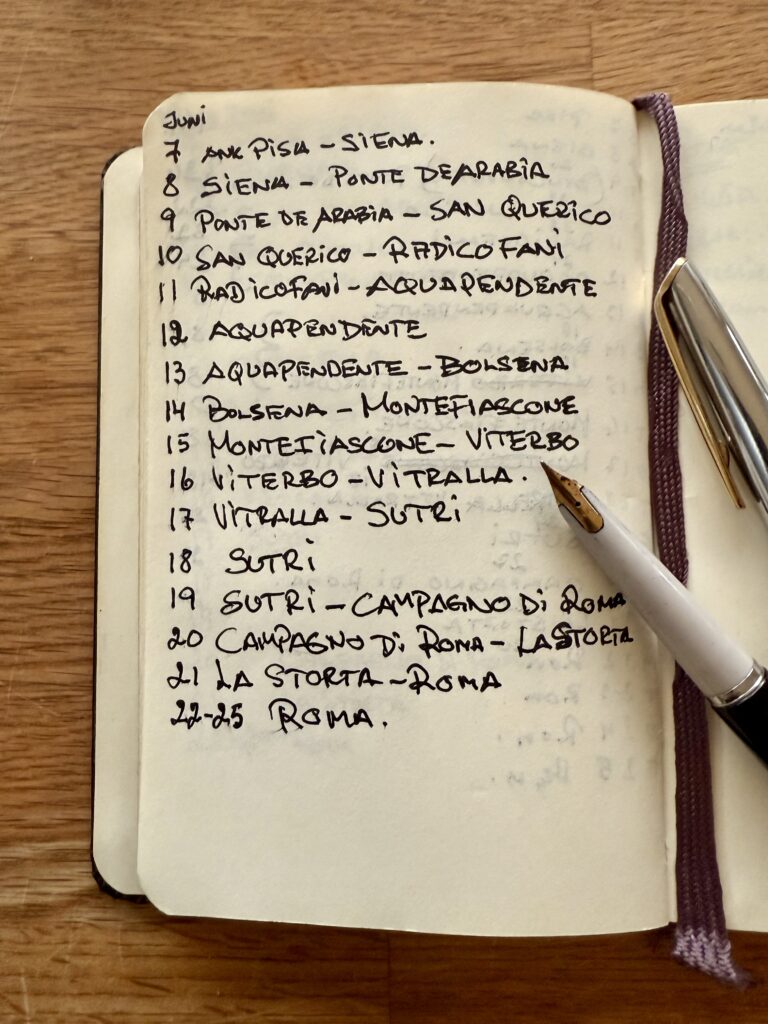 Juni
7 ANK PISA - SIENA.
8 SIENA - PONTE DE ARABIA
9 PONTE DE ARABIA - SAN QUERICO
10 SAN QUERICO - RADICOFANI
11 RADICOFANI - ACQUAPENDENTE
12 AQUAPENDENTE
13 AQUAPENDENTE - BOLSENA
14 BOLSENA - MONTEFIASCONE
15 MONTEFIASCONE - VITERBO
16 VITERBO - VITRALLA.
17 VITRALLA - SUTRI
18 SUTRI
19 SUTRI - CAMPAGNO Di ROMA
20 CAMPAGNO Di ROMA - LA STORTA
21 LA STORTA - ROMA
22-25 ROMA.